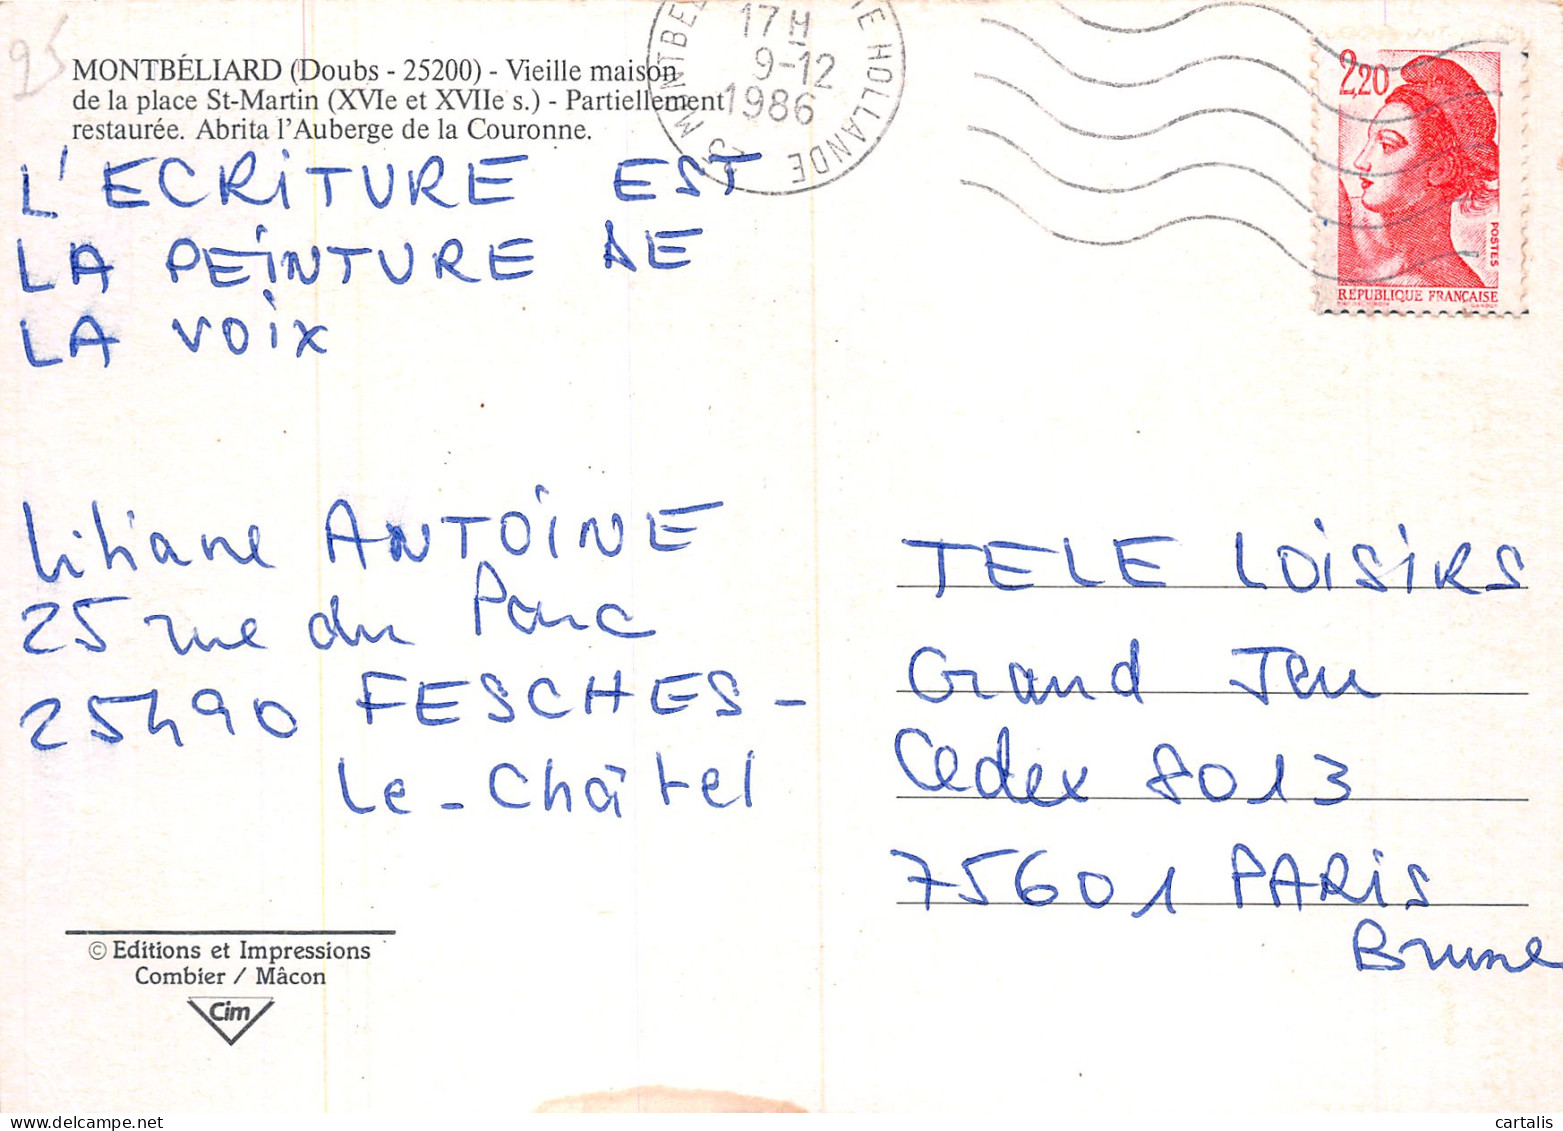 25
MONTBÉLIARD (Doubs - 25200) - Vieille maison
de la place St-Martin (XVIe et XVIIe s.) - Partiellement
restaurée. Abrita l'Auberge de la Couronne.
17H
9-12
1986
25 MONTBE
HOLLANDE
2,20
POSTES
RÉPUBLIQUE FRANÇAISE
L'ECRiTURE EST
LA PEiNTURE DE
LA VOiX
Liliane ANTOiNE
25 rue du Parc
25490 FESCHES-
Le-Châtel
TELE LOiSiRS
Grand Jeu
Cedex 8013
75601 PARiS
Brune
© Editions et Impressions
Combier / Mâcon
Cim
cartalis